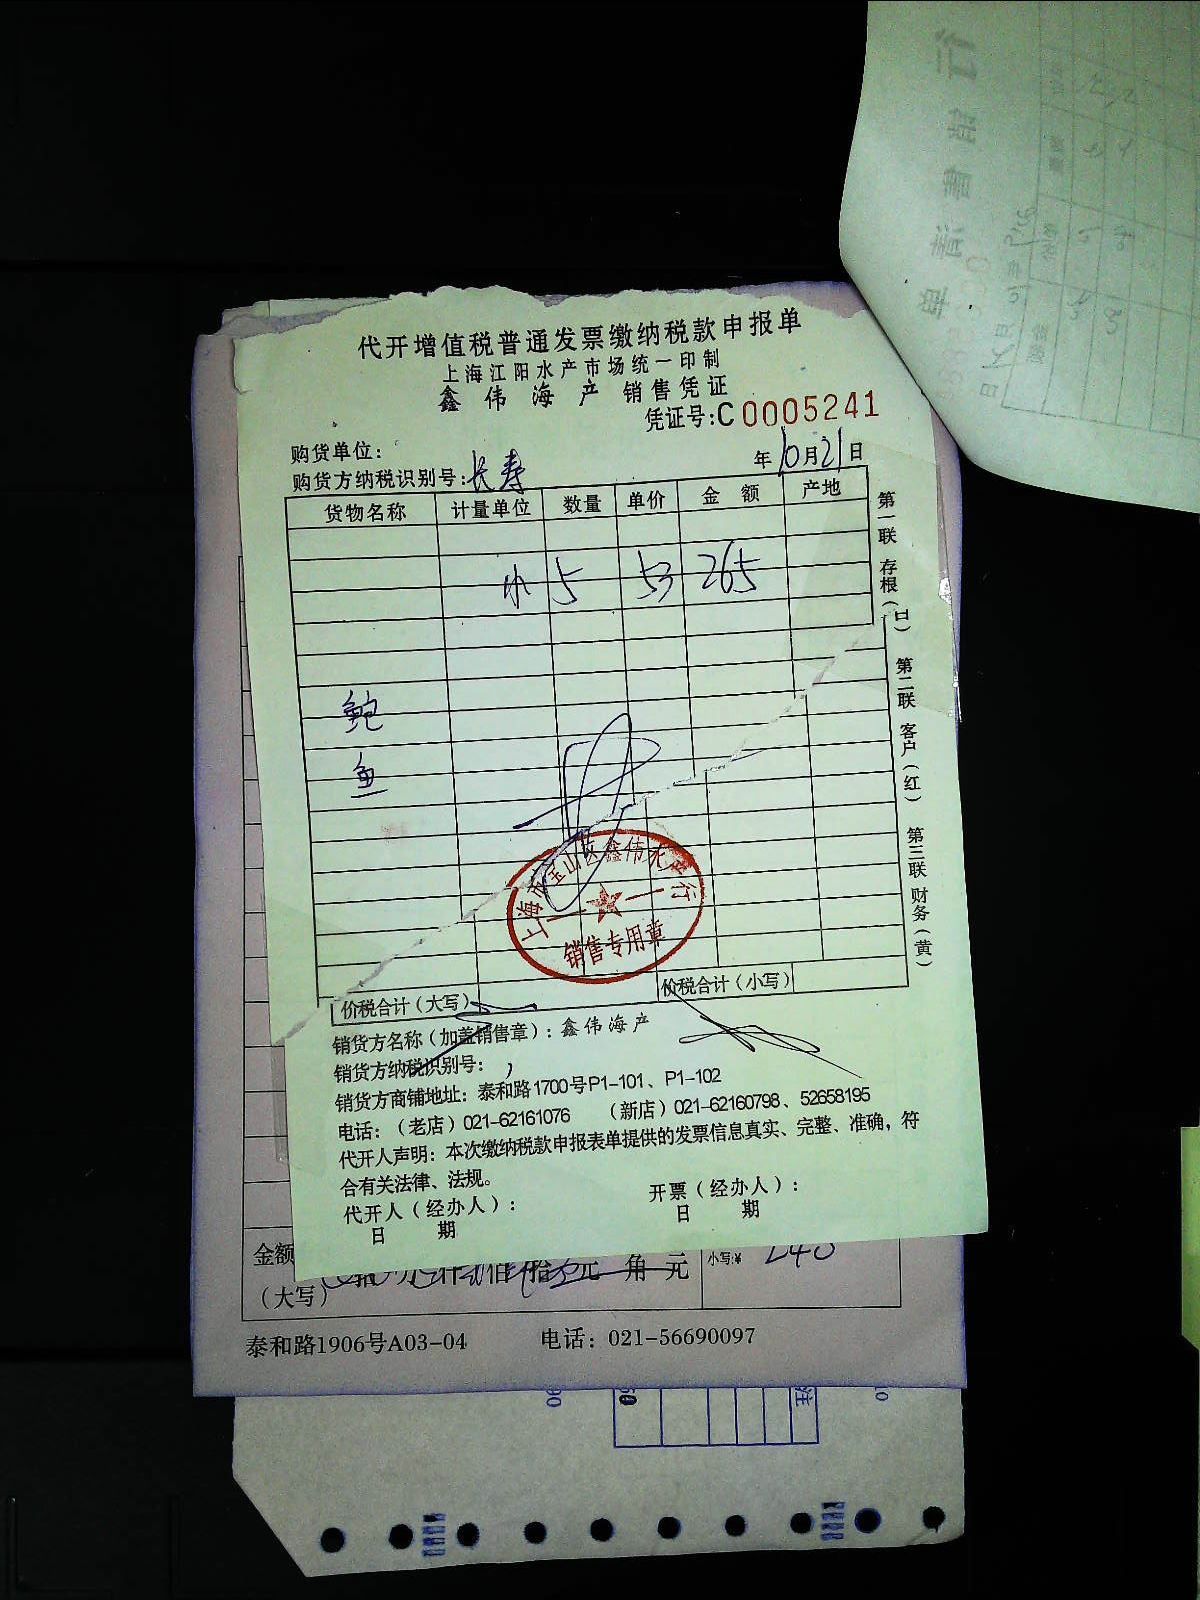 代开增值税普通发票缴纳税款申报单
上海江阳水产市场统一印制
鑫伟海产 销售凭证
凭证号:C0005241
购货单位:
年10月21日
购货方纳税识别号:长寿
货物名称 计量单位 数量 单价 金额 产地
5 53 265
鲍
鱼
上海市宝山区鑫伟水产行
销售专用章
价税合计（大写） 价税合计（小写）
第一联 存根（白） 第二联 客户（红） 第三联 财务（黄）
销货方名称（加盖销售章）: 鑫伟海产
销货方纳税识别号:
销货方商铺地址: 泰和路1700号P1-101、P1-102
电话:（老店）021-62161076 （新店）021-62160798、52658195
代开人声明: 本次缴纳税款申报表单提供的发票信息真实、完整、准确，符
合有关法律、法规。
代开人（经办人）: 开票（经办人）:
日 期 日 期
金额
（大写） 拾 万 仟 佰 拾 元 角 元 小写:¥ 240
泰和路1906号A03-04 电话: 021-56690097